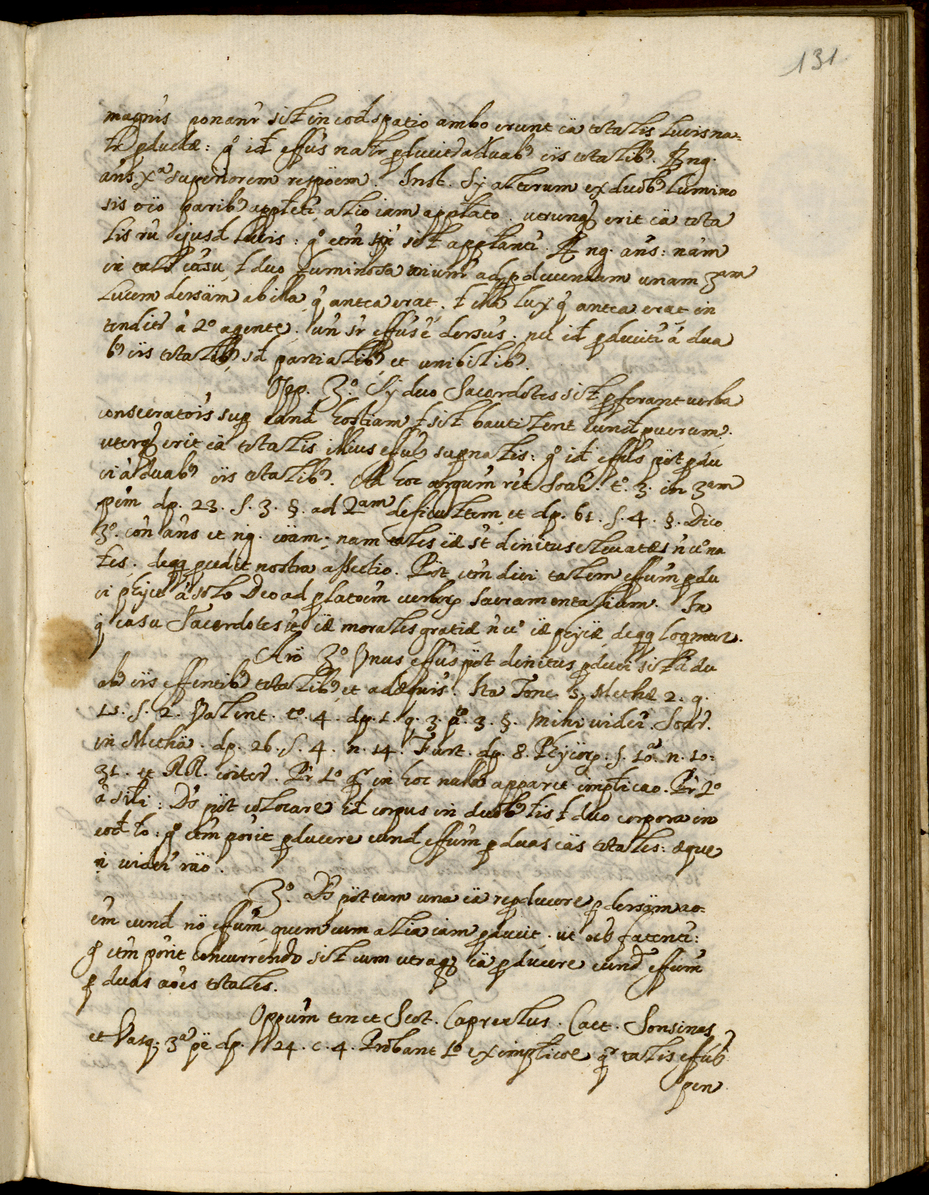 131
magnis ponanr sit in eod spatio ambo erunt cä totalis lucis na=
tr pductæ: g id effus natr pducit a duab ciis totalib. Rng.
ans xª superiorem respöem. Inst. Si alterum ex duob lumino
sis oïo parib applet alio iam applato. utrunq erit cä tota
lis ejusd lucis: gº etm si sit applant. Rng. ans: nam
in tali casu t duo luminosa ad pducendam unam 3am
lucem dersam ab illa q antea erat. t illa lux q antea erat in
tendit à 2º agente. un sr effus é dersus. nc id pducit à dua
b ciis totalib sd partialib et unibilib.
Opp. 3º. Si duo Sacerdotes sit pferant verba
consecratois sup eand hostiam t sit bautizent eund puerum.
uterq erit cä totalis illius effus supnatis: gº id effus pöt pdu
ci à duab ciis totalib. Ad hoc argum rët Soar. tº. 3. in 3am
pem dp. 23. S. 3. §. ad 2am dificultem et dp. 61. S. 4. §. Dico
3º. con ans et ng. coam: nam tales cæ st dinitus elevatæs n vº na
les. de qq pcedit nostra assectio. Pöt etm dici talem effum pdu
ci physice à solo Deo ad platoem verborp sacramentalium. In
q casu Sacerdotes st cæ morales gratiæ n vº cæ physicæ de qq loqmur.
Arö 3º Unus effus pöt dinitus pduci sit à du
ab ciis effentib totalib et adæquis. Ita Fonc. 5. Methæ 2. q.
11. S. 2. Valent. tº. 4. dp. 1. q. 3. pº. 3. §. mihi vider. Soar.
in Methä. dp. 26. S. 4. n. 14. Furt. dp. 8. Physicorp. S. 10ª. n. 10.
31. et RR. coiter. Pr 1º qr in hoc nulla apparet implicao. Pr 2º
à sili: Ds pöt colocare id corpus in duob lis t duo corpora in
eod lo: gº etm porit pducere eund effum p duas cäs totales: æque
n. vider räo.
3º. Ds pöt cum una cä repducere p dersam ao=
em eund nö effum quem cum alia iam pducit. ut oës fatent:
gº etm porit concurrendo sit cum utraq cä pducere eund effum
p duas aöes totales.
Oppum tenet Scot. Capreolus. Caet. Sonsinas,
et Vasq. 3ª pe dp. 124. c. 4. Probant 1º ex implicoe qr talis effus
pen